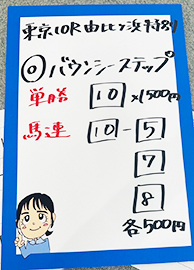 東京10R由比ヶ浜特別
◎バウンシーステップ
単勝 10 ×1500円
馬連 10-5
7
8
各500円